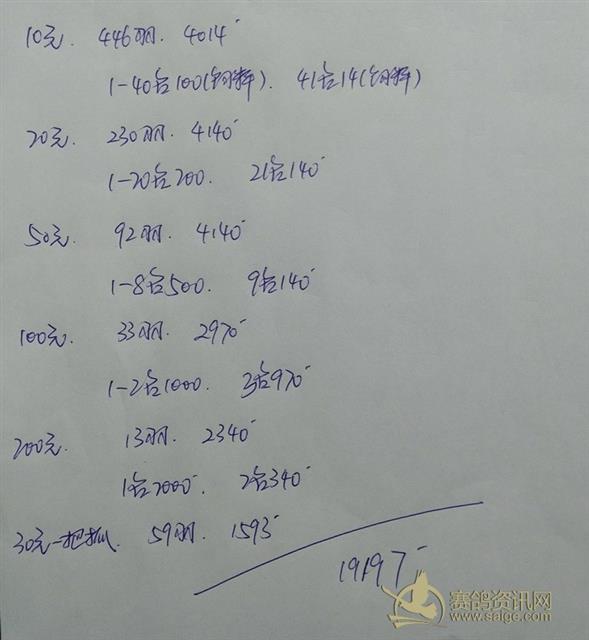 10元. 446羽. 4014
1-40名100(饲料). 41名14(饲料)
20元. 230羽. 4140
1-20名200. 21名140
50元. 92羽. 4140
1-8名500. 9名140
100元. 33羽. 2970
1-2名1000. 3名970
200元. 13羽. 2340
1名2000. 2名340
30元一把抓. 59羽. 1593
19197
赛鸽资讯网
www.saige.com